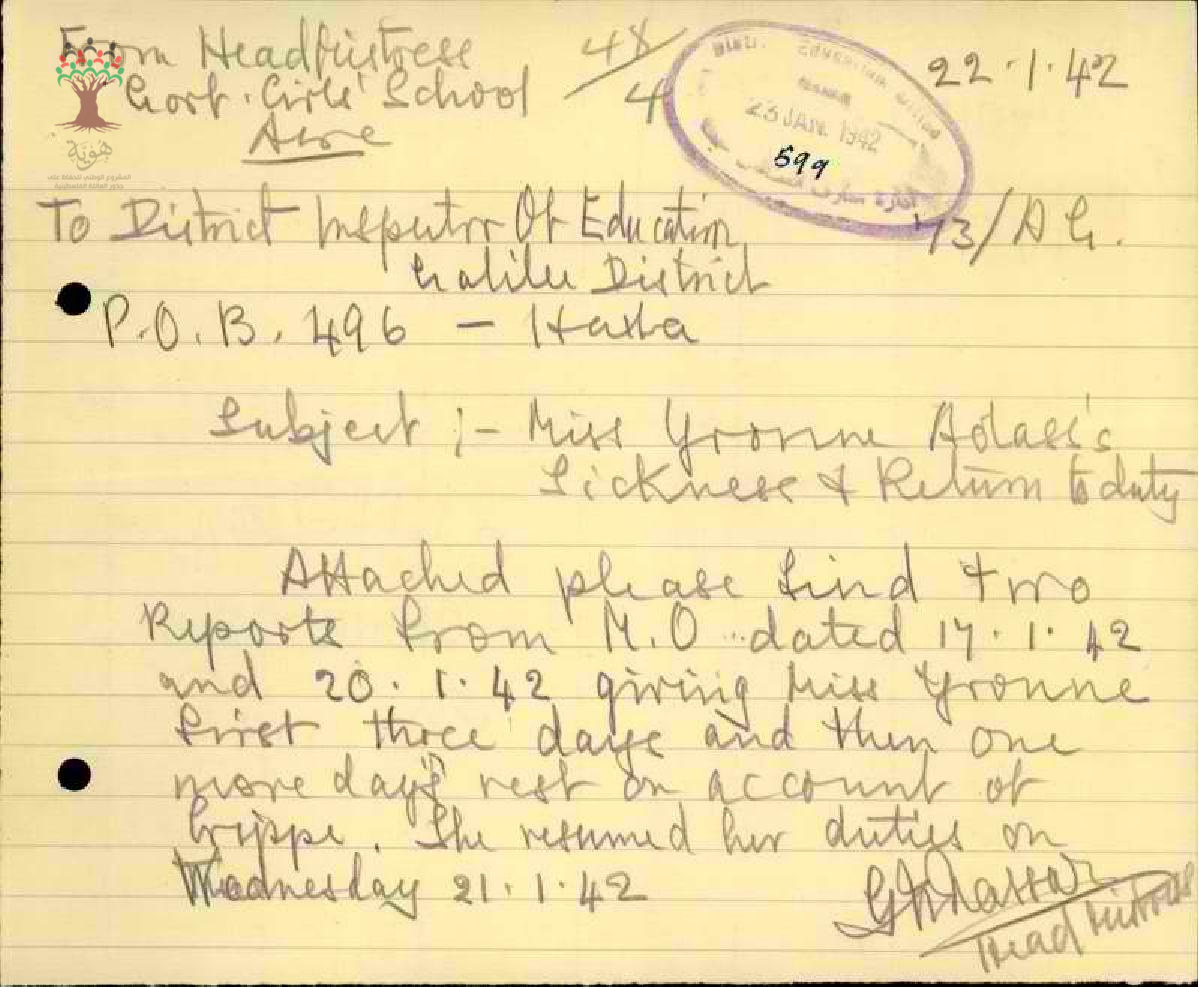 From Headmistress
Govt. Girls' School
Acre
48/4
22.1.42
23 JAN. 1942
599
هوية
المشروع الوطني للحفاظ على
جذور العائلة الفلسطينية
To District Inspector Of Education
13/A G.
Galilee District
P.O.B. 496 – Haifa
Subject :- Miss Yvonne Adass's
Sickness & Return to duty
Attached please find two
Reports from M.O dated 17.1.42
and 20.1.42 giving Miss Yvonne
first three days and then one
more day's rest on account of
Grippe. She resumed her duties on
Wednesday 21.1.42
Head Mistress